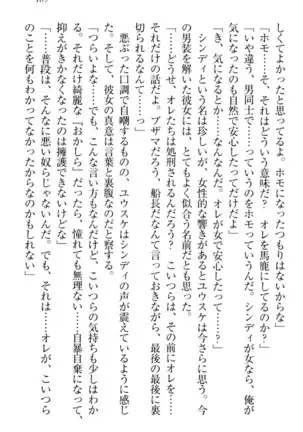 してよかったと思ってるよ。ホモになったつもりはないな」
「ホモ……って、それはどういう意味だ？　オレを馬鹿にしてるのか？」
「いや違う、男同士で……っていうのをホモっていうんだ。シンディが女なら、俺が
気になったのも自然で安心したってだけだよ」
「き、気になるとか……なんなんだ。オレが女で安心したって……？」
　シンディという名は珍しいが、女性的な響きがあるとユウスケは今さらに思う。今
の男装を解いた彼女には、とてもよく似合う名前だとも思った。
「……どうせ、オレたちは処刑されるんだろ？　こいつらは、その前にオレを……。
それだけの話だよ。ブザマだろう、船長だなんて言っておきながら、最後の最後で裏
切られるなんてな……っ」
　悪ぶった口調で自嘲するものの、ユウスケはシンディの声が震えているように感じ
た。それだけで、彼女の真意は言葉と裏腹なのだと察する。
「つらいよな……でも、こんな言い方もなんだけど、こいつらの気持ちも少しはわか
る。それだけ綺麗な『おかしら』だったら、憧れても無理ない……自暴自棄になって、
抑えがきかなくなったのは擁護できないけどな」
「……普段は、そんなに悪い奴らじゃないんだ。でも、それは……オレが、こいつら
のことを何もわかってなかったからなのかもしれない」